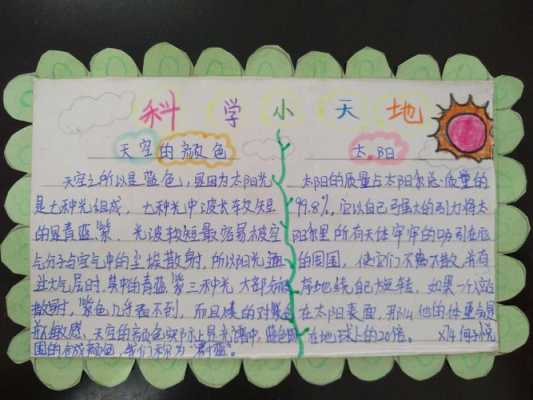 科学小天地
天空的颜色
天空之所以是蓝色，是因为太阳光
是七种光组成，七种光中波长较短
的是青蓝紫，光波较短最容易被空
气分子与空气中的尘埃散射，所以阳光
过大气层时，其中的青蓝紫三种光大部分
散射，紫色几乎看不到，而且
敏感，天空的颜色实际上是光谱中，蓝色
国的合成颜色，我们称为"
太阳
太阳的质量占太阳系总质量的
99.8%，它以自己强大的引力将太
阳系里所有天体牢牢的吸引在
的周围，使它们不离不散，有
存地绕自己旋转，如果一个
在太阳表面，那么他的体重会是
在地球上的20倍。